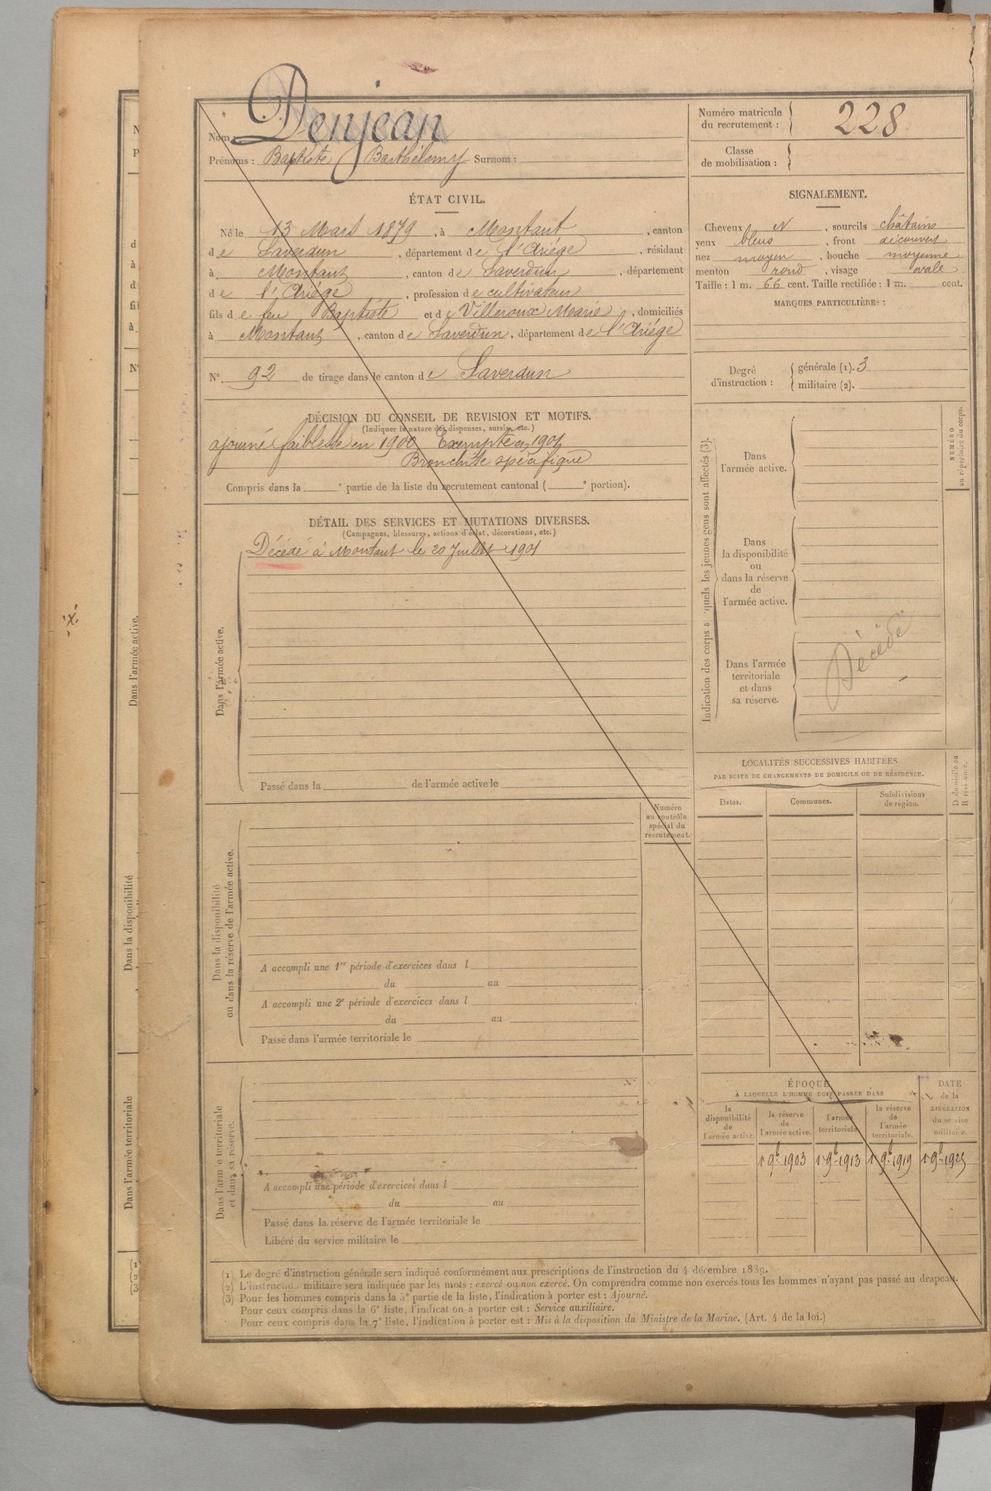 Nom : Denjean
Prénoms : Baptiste Barthélemy Surnom :
Numéro matricule du recrutement : 228
Classe de mobilisation :
ÉTAT CIVIL.
Né le 13 Mars 1879, à Montaut, canton
de Saverdun, département de l'Ariége, résidant
à Montaut, canton de Saverdun, département
de l'Ariége, profession de cultivateur
fils de feu Baptiste et de Villeroux Marie, domiciliés
à Montaut, canton de Saverdun, département de l'Ariége
N° 92 de tirage dans le canton de Saverdun
SIGNALEMENT.
Cheveux N, sourcils châtains
yeux bleus, front découvert
nez moyen, bouche moyenne
menton rond, visage ovale
Taille : 1 m. 66 cent. Taille rectifiée : 1 m. cent.
MARQUES PARTICULIÈRES :
Degré d'instruction : générale (1). 3
militaire (2).
DÉCISION DU CONSEIL DE REVISION ET MOTIFS.
(Indiquer la nature des dispenses, sursis, etc.)
ajourné faiblesse en 1900 Exempté en 1901
Bronchite spécifique
Compris dans la e partie de la liste du recrutement cantonal ( e portion).
DÉTAIL DES SERVICES ET MUTATIONS DIVERSES.
(Campagnes, blessures, actions d'éclat, décorations, etc.)
Décédé à Montaut le 20 Juillet 1901
Dans l'armée active.
Passé dans la de l'armée active le
Numéro au contrôle spécial du recrutement.
Dans la disponibilité ou dans la réserve de l'armée active.
A accompli une 1re période d'exercices dans l
du au
A accompli une 2e période d'exercices dans l
du au
Passé dans l'armée territoriale le
Dans l'armée territoriale et dans sa réserve.
A accompli une période d'exercices dans l
du au
Passé dans la réserve de l'armée territoriale le
Libéré du service militaire le
Indication des corps auxquels les jeunes gens sont affectés (3).
NUMÉRO au répertoire du corps.
Dans l'armée active.
Dans la disponibilité ou dans la réserve de l'armée active.
Dans l'armée territoriale et dans sa réserve.
Décédé
LOCALITÉS SUCCESSIVES HABITÉES
PAR SUITE DE CHANGEMENTS DE DOMICILE OU DE RÉSIDENCE.
Dates. Communes. Subdivisions de région. D domicile ou R résidence.
ÉPOQUE
À LAQUELLE L'HOMME DOIT PASSER DANS
DATE de la LIBÉRATION du service militaire.
la disponibilité de l'armée active.
la réserve de l'armée active.
l'armée territoriale.
la réserve de l'armée territoriale.
1 9bre 1903 1 9bre 1913 1 9bre 1919 1 9bre 1925
(1) Le degré d'instruction générale sera indiqué conformément aux prescriptions de l'instruction du 4 décembre 1889.
(2) L'instruction militaire sera indiquée par les mots : exercé ou non exercé. On comprendra comme non exercés tous les hommes n'ayant pas passé au drapeau.
(3) Pour les hommes compris dans la 5e partie de la liste, l'indication à porter est : Ajourné.
Pour ceux compris dans la 6e liste, l'indication à porter est : Service auxiliaire.
Pour ceux compris dans la 7e liste, l'indication à porter est : Mis à la disposition du Ministre de la Marine. (Art. 4 de la loi.)
Dans l'armée active.
Dans la disponibilité
Dans l'armée territoriale